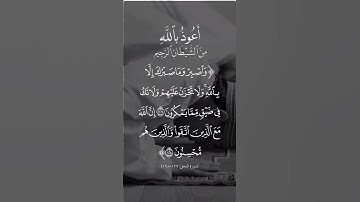 أَعُوذُ بِاللَّهِ
مِنَ الشَّيْطَانِ الرَّجِيمِ
﴿ وَٱصْبِرْ وَمَا صَبْرُكَ إِلَّا
بِٱللَّهِ ۚ وَلَا تَحْزَنْ عَلَيْهِمْ وَلَا تَكُ
فِى ضَيْقٍ مِّمَّا يَمْكُرُونَ ١٢٧ إِنَّ ٱللَّهَ
مَعَ ٱلَّذِينَ ٱتَّقَوا۟ وَّٱلَّذِينَ هُم
مُّحْسِنُونَ ١٢٨ ﴾
[سورة النحل: ١٢٧-١٢٨]